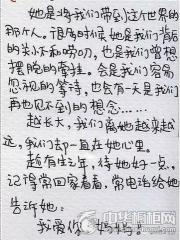 她是将我们带到这个世界的
那个人。很多时候她是我们背后
的关怀和唠叨,也是我们曾想
摆脱的牵挂。会是我们容易
忽视的等待,也会有一天是我们
再也见不到的想念……
越长大,我们离她越来越
远,我们却一直在她心里。
趁有生之年,待她好一点,
记得常回家看看,常电话给她
告诉她:
我爱你 妈妈
中华橱柜网